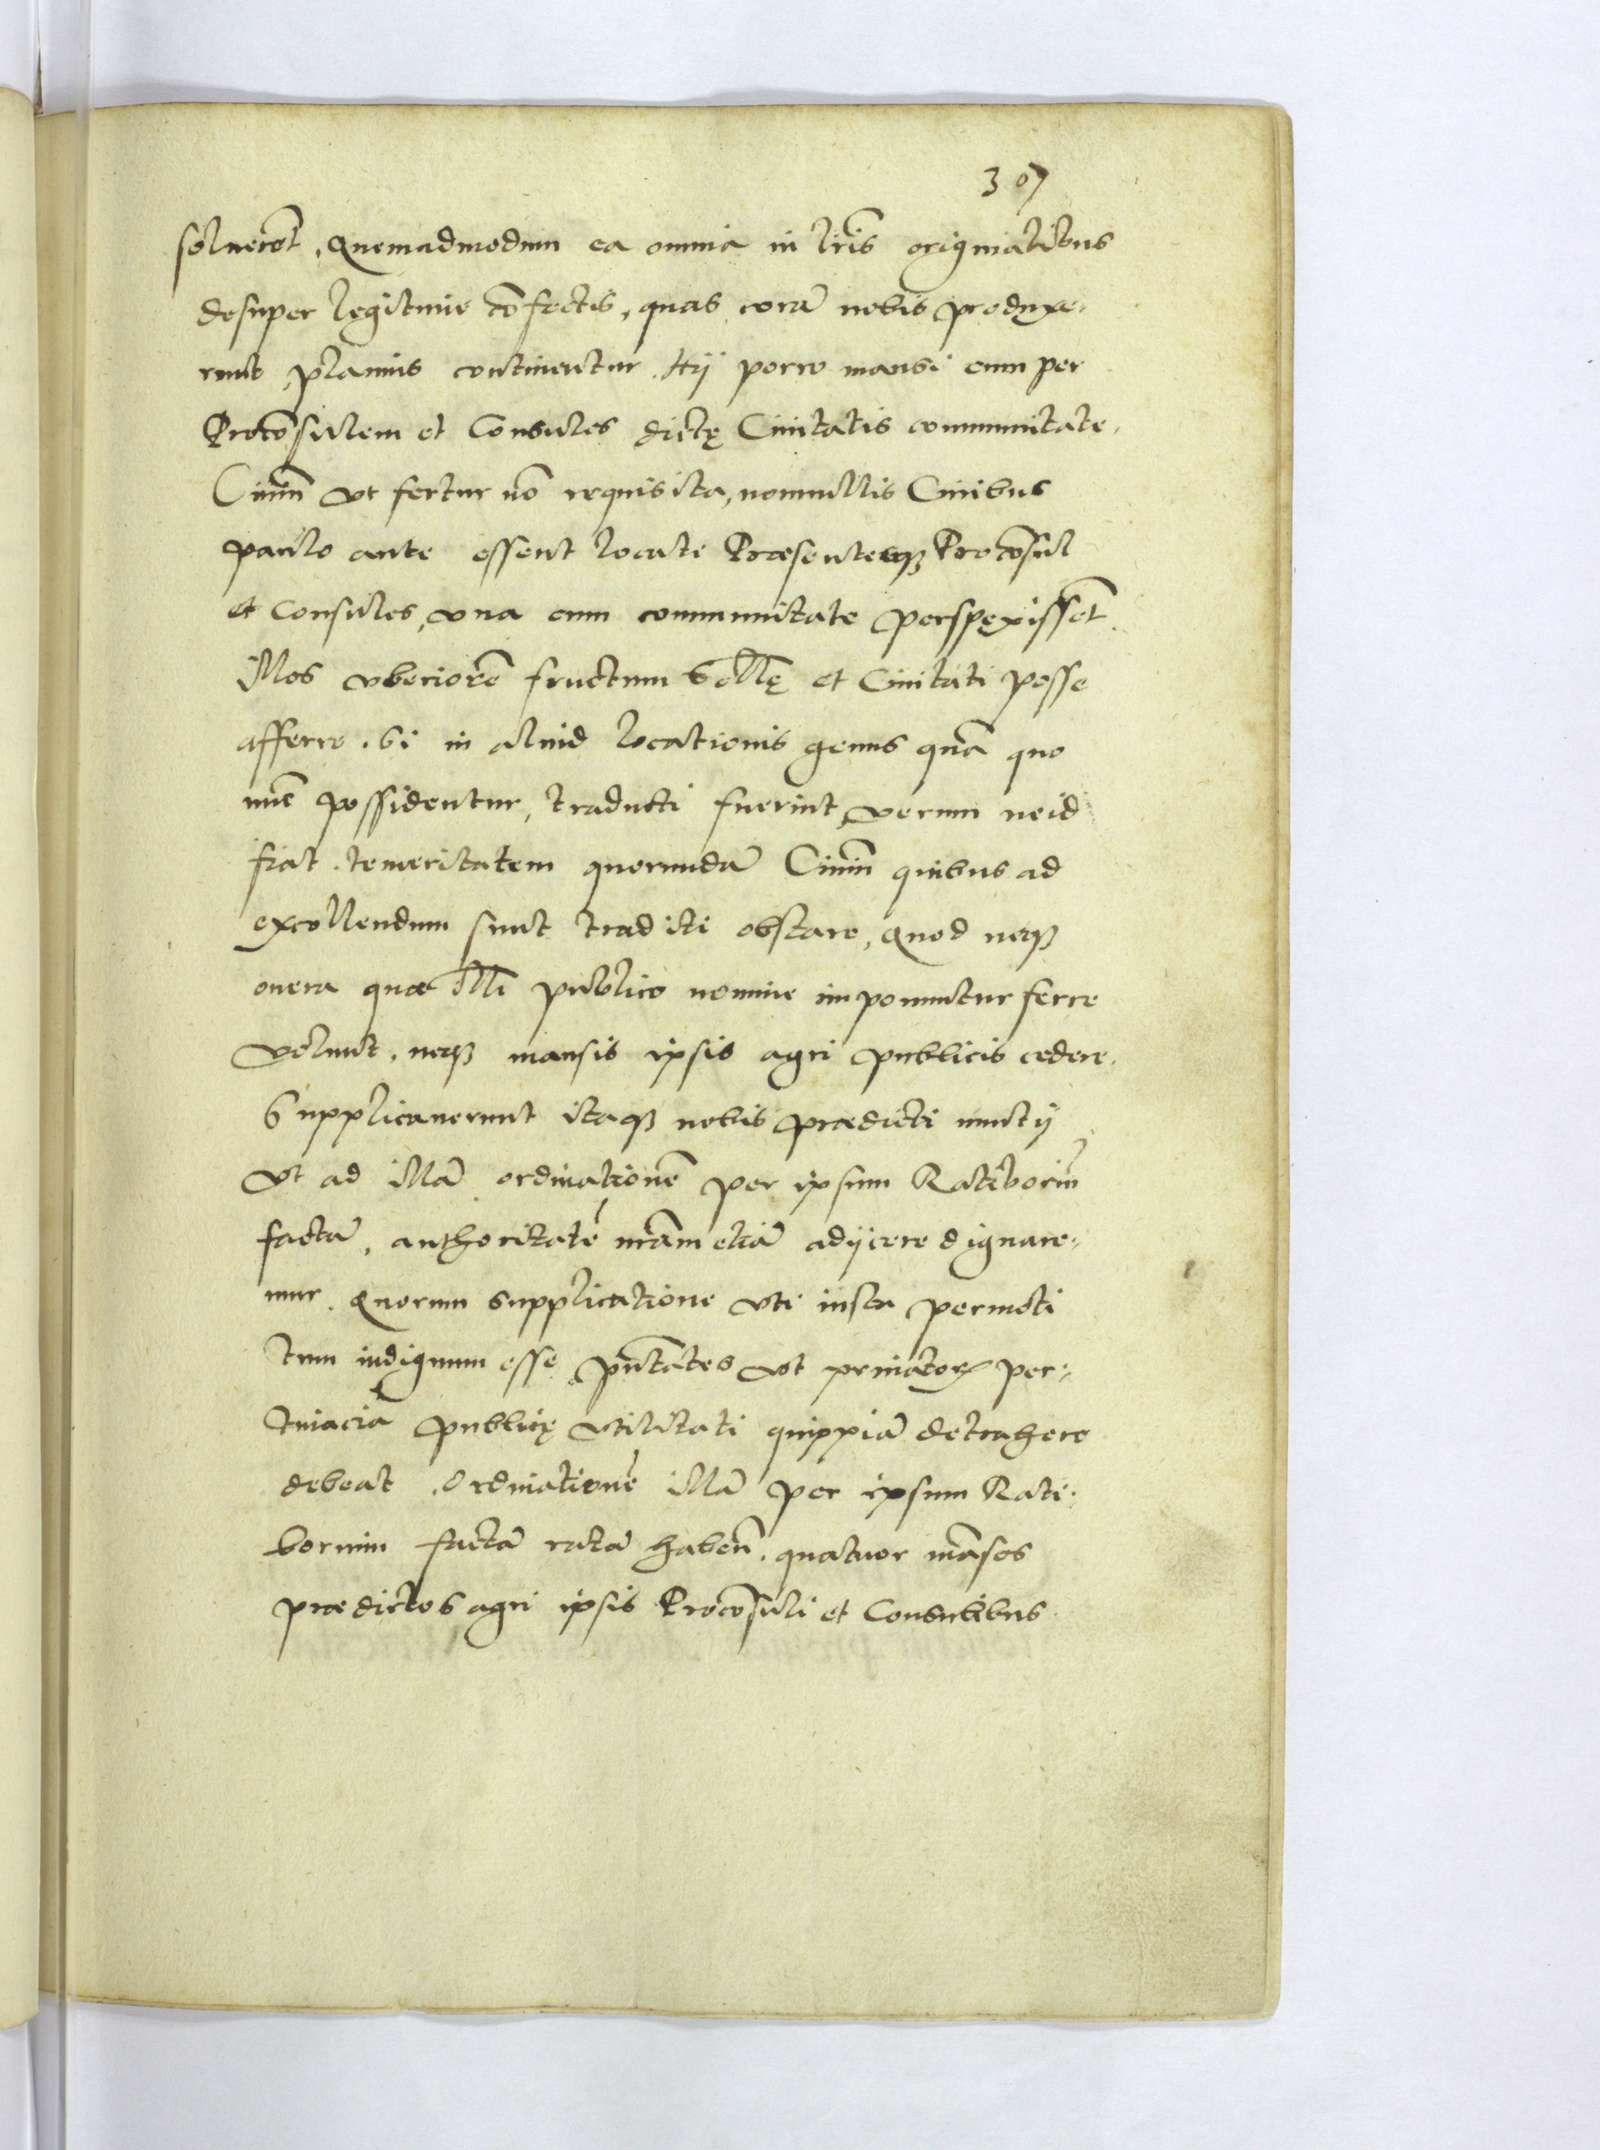 307
soluerēt. Quemadmodum ea omnia in lrīs originalibus
desuper legitime cōfectis, quas corā nobis produxe-
runt planius continentur. Hij porro mansi cum per
Procōsulem et Consules dictę Ciuitatis communitate,
Ciuiū vt fertur nō requisita, nonnullis Ciuibus
paulo ante essent locati Praesentesq; Procōsul
et Consules, vna cum communitate perspexissēt
illos vberiorē fructum Scllę et Ciuitati posse
afferre. Si in aliud locationis genus quā quo
nūc possidentur, traducti fuerint, verum ne id
fiat. temeritatem quorundā Ciuiū quibus ad
excollendum sunt traditi obstare, Quod neq;
onera quae illi publico nomine imponuntur ferre
velint. neq; mansis ipsis agri publicis cedere.
Supplicauerunt itaq; nobis praedicti nunctij
Vt ad illā ordinationē per ipsum Ratiboriū
factā, authoritatē nrām etiā adijcere dignare-
mur. Quorum supplicatione vti iusta permoti
tum indignum esse putātes vt priuatorū per-
tinaciā publicę vtilitati quippiā detrahere
debeat. Ordinationē illā per ipsum Rati-
borium factā ratā habeñ. quatuor māsos
praedictos agri ipsis Procōsuli et Consulibus